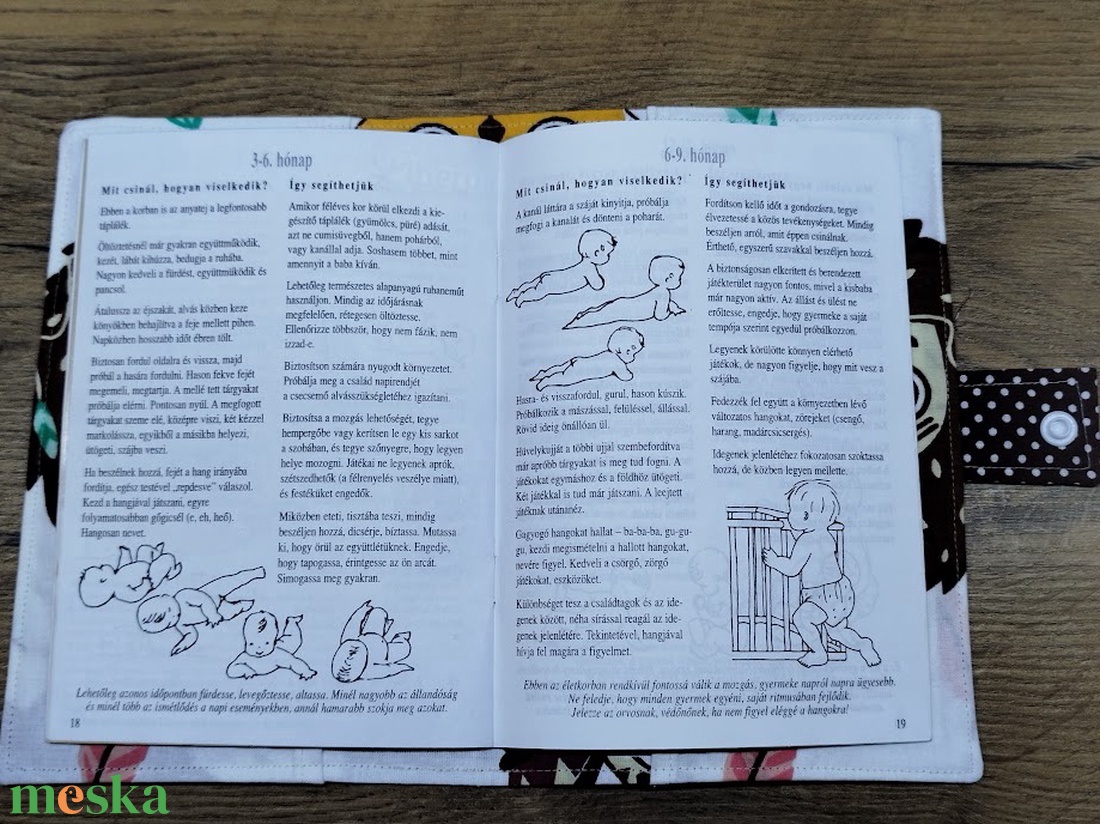 3-6. hónap
Mit csinál, hogyan viselkedik?
Ebben a korban is az anyatej a legfontosabb
táplálék.
Öltöztetésnél már gyakran együttműködik,
kezét, lábát kihúzza, bedugja a ruhába.
Nagyon kedveli a fürdést, együttműködik és
pancsol.
Átalussza az éjszakát, alvás közben keze
könyökben behajlítva a feje mellett pihen.
Napközben hosszabb időt ébren tölt.
Biztosan fordul oldalra és vissza, majd
próbál a hasára fordulni. Hason fekve fejét
megemeli, megtartja. A mellé tett tárgyakat
próbálja elérni. Pontosan nyúl. A megfogott
tárgyakat szeme elé, középre viszi, két kézzel
markolássza, egyikből a másikba helyezi,
ütögeti, szájba veszi.
Ha beszélnek hozzá, fejét a hang irányába
fordítja, egész testével „repdesve” válaszol.
Kezd a hangjával játszani, egyre
folyamatosabban gőgicsél (e, eh, heő).
Hangosan nevet.
Így segíthetjük
Amikor féléves kor körül elkezdi a kie-
gészítő táplálék (gyümölcs, püré) adását,
azt ne cumisüvegből, hanem pohárból,
vagy kanállal adja. Sohasem többet, mint
amennyit a baba kíván.
Lehetőleg természetes alapanyagú ruhaneműt
használjon. Mindig az időjárásnak
megfelelően, rétegesen öltöztesse.
Ellenőrizze többször, hogy nem fázik, nem
izzad-e.
Biztosítson számára nyugodt környezetet.
Próbálja meg a család napirendjét
a csecsemő alvásszükségletéhez igazítani.
Biztosítsa a mozgás lehetőségét, tegye
hempergőbe vagy kerítsen le egy kis sarkot
a szobában, és tegye szőnyegre, hogy legyen
helye mozogni. Játékai ne legyenek aprók,
szétszedhetők (a félrenyelés veszélye miatt),
és festéküket engedők.
Miközben eteti, tisztába teszi, mindig
beszéljen hozzá, dicsérje, bíztassa. Mutassa
ki, hogy örül az együttlétüknek. Engedje,
hogy tapogassa, érintgesse az ön arcát.
Simogassa meg gyakran.
Lehetőleg azonos időpontban fürdesse, levegőztesse, altassa. Minél nagyobb az állandóság
és minél több az ismétlődés a napi eseményekben, annál hamarabb szokja meg azokat.
18
6-9. hónap
Mit csinál, hogyan viselkedik?
A kanál láttára a száját kinyitja, próbálja
megfogi a kanalát és dönteni a poharát.
Hasra- és visszafordul, gurul, hason kúszik.
Próbálkozik a mászással, felüléssel, állással.
Rövid ideig önállóan ül.
Hüvelykujját a többi ujjal szembefordítva
már apróbb tárgyakat is meg tud fogni. A
játékokat egymáshoz és a földhöz ütögeti.
Két játékkal is tud már játszani. A leejtett
játéknak utánanéz.
Gagyogó hangokat hallat – ba-ba-ba, gu-gu-
gu, kezdi megismételni a hallott hangokat,
nevére figyel. Kedveli a csörgő, zörgő
játékokat, eszközöket.
Különbséget tesz a családtagok és az ide-
genek között, néha sírással reagál az ide-
genek jelenlétére. Tekintetével, hangjával
hívja fel magára a figyelmet.
Így segíthetjük
Fordítson kellő időt a gondozásra, tegye
élvezetessé a közös tevékenységeket. Mindig
beszéljen arról, amit éppen csinálnak.
Érthető, egyszerű szavakkal beszéljen hozzá.
A biztonságosan elkerített és berendezett
játékterület nagyon fontos, mivel a kisbaba
már nagyon aktív. Az állást és ülést ne
erőltesse, engedje, hogy gyermeke a saját
tempója szerint egyedül próbálkozzon.
Legyenek körülötte könnyen elérhető
játékok, de nagyon figyelje, hogy mit vesz a
szájába.
Fedezzék fel együtt a környezetben lévő
változatos hangokat, zörejeket (csengő,
harang, madárcsicsergés).
Idegenek jelenlétéhez fokozatosan szoktassa
hozzá, de közben legyen mellette.
Ebben az életkorban rendkívül fontossá válik a mozgás, gyermeke napról napra ügyesebb.
Ne feledje, hogy minden gyermek egyéni, saját ritmusában fejlődik.
Jelezze az orvosnak, védőnőnek, ha nem figyel eléggé a hangokra!
19
meska